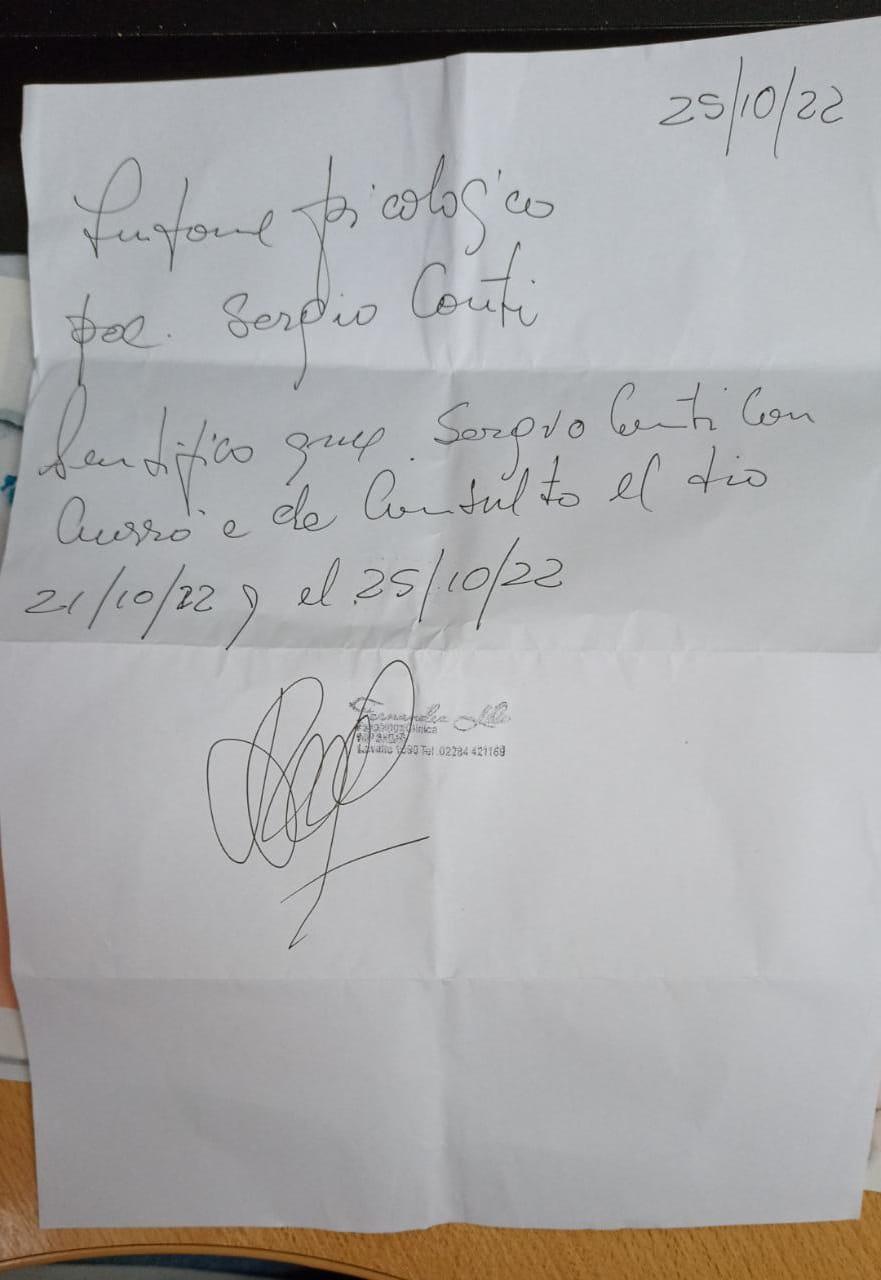 25/10/22
Informe psicologico
por. Sergio Conti
Sertifico que. Sergio Conti con
currio e de consulto el dio
21/10/22 y el 25/10/22
Fernandez
Lavalle Tel .02284 421169